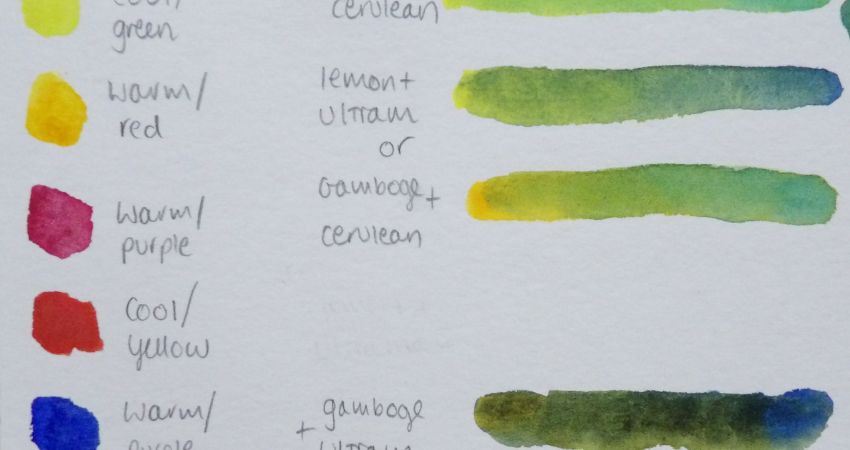 cool/
green
warm/
red
warm/
purple
cool/
yellow
warm/
purple
cerulean
lemon+
ultram
or
Gamboge+
cerulean
gamboge
+